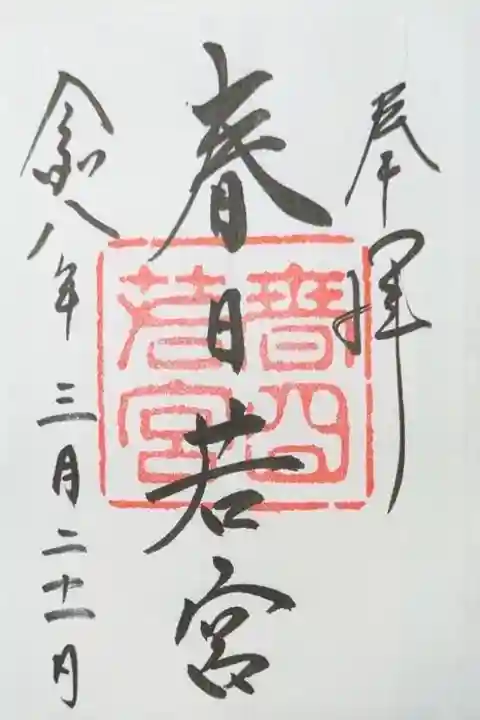 奉拝
春日若宮
春日
若宮
令和八年三月二十一日